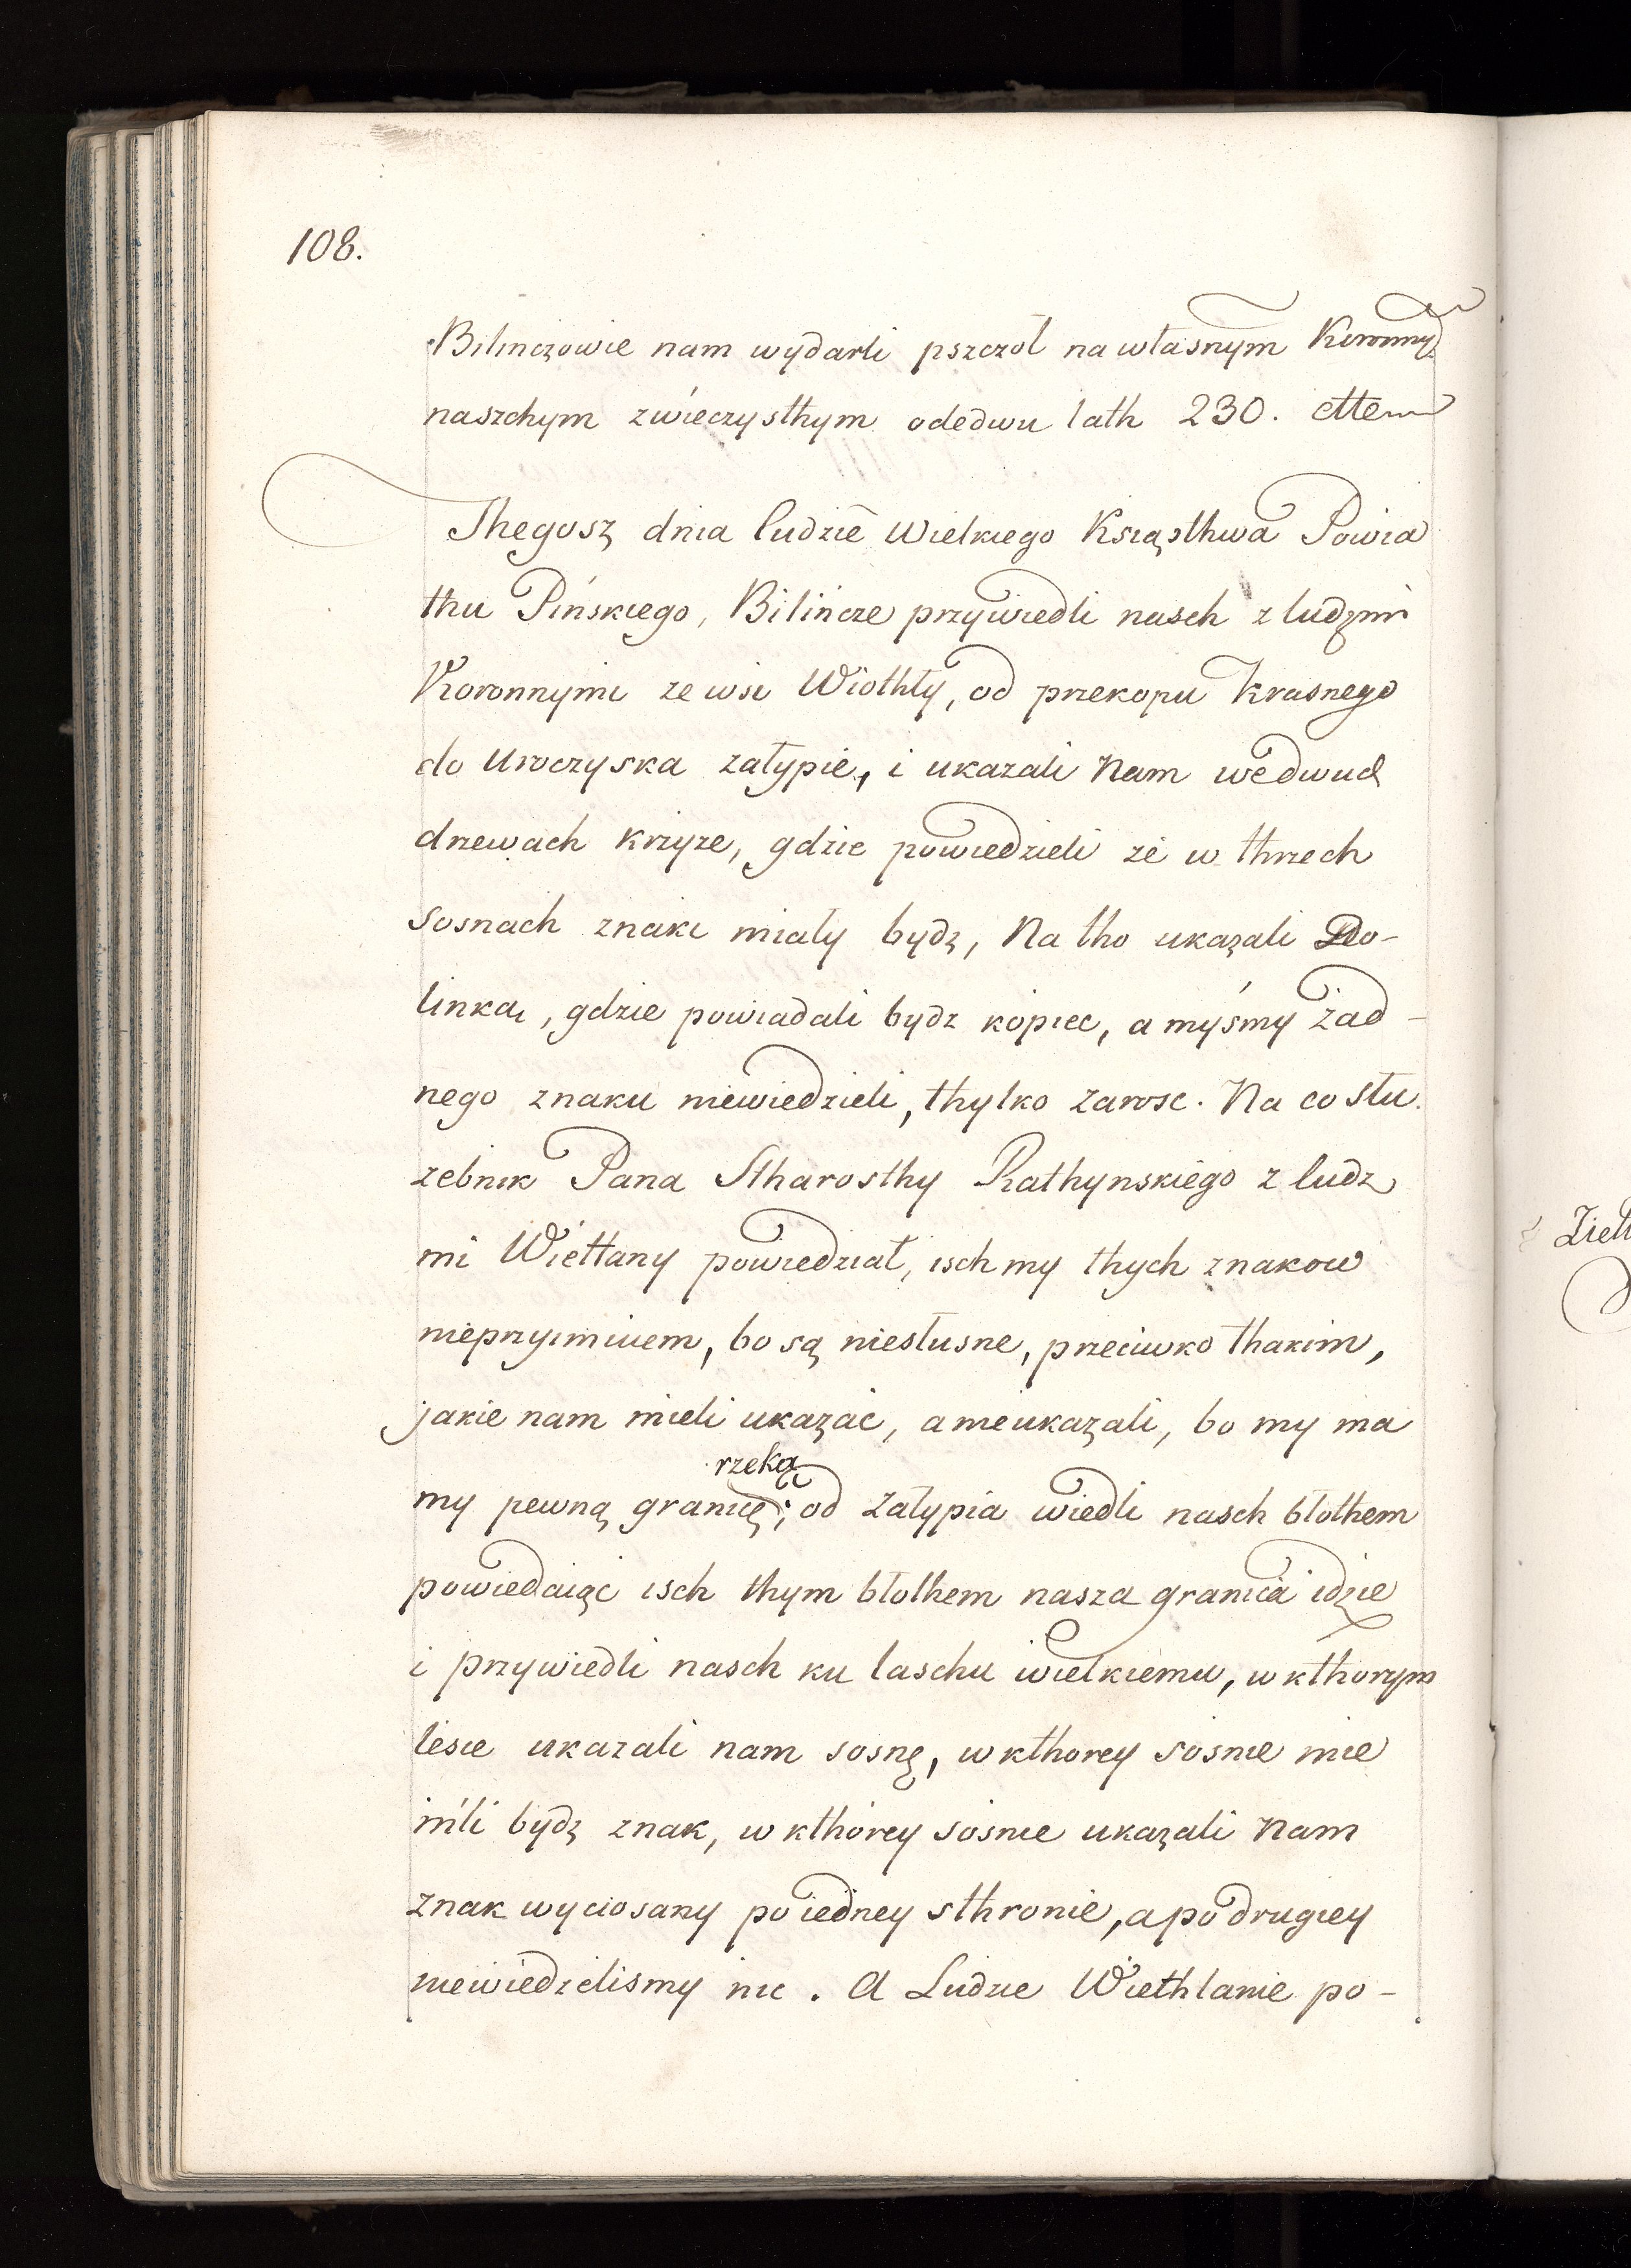 108.
Bilinczowie nam wydarli pszczół na własnym
naszchym zwieczysthym odedwu lath 230.
Thegosz dnia ludzie Wielkiego Ksiąsthwa Powia
thu Pińskiego, Bilińcze przywiedli nasch z ludzmi
Koronnymi ze wsi Wiothły, od przekopu Krasnego
do Uroczyska załypie, i ukazali Nam wedwuch
drzewach krzyze, gdzie powiedzieli ze w thrzech
sosnach znaki miały bydz, Na tho ukazali Do-
linka, gdzie powiadali bydz kopiec, a myśmy żad-
nego znaku niewiedzieli, thylko zarosc. Na co słu
zebnik Pana Stharosthy Rathynskiego z ludz
mi Wietłany powiedział, isch my thych znakow
nieprzyimiuem, bo są niesłusne, przeciwko thakim,
jakie nam mieli ukazać, a nieukazali, bo my ma
rzeką
my pewną granicę; od Załypia wiedli nasch błothem
powiedaiąc isch thym błothem nasza granica idzie
i przywiedli nasch ku laschu wielkiemu, w kthorym
lesie ukazali nam sosnę, w kthorey sosnie mie
nili bydz znak, w kthorey sosnie ukazali Nam
znak wyciosany po iedney sthronie, a po drugiey
niewiedzielismy nic. A Ludzie Wiethlanie po-